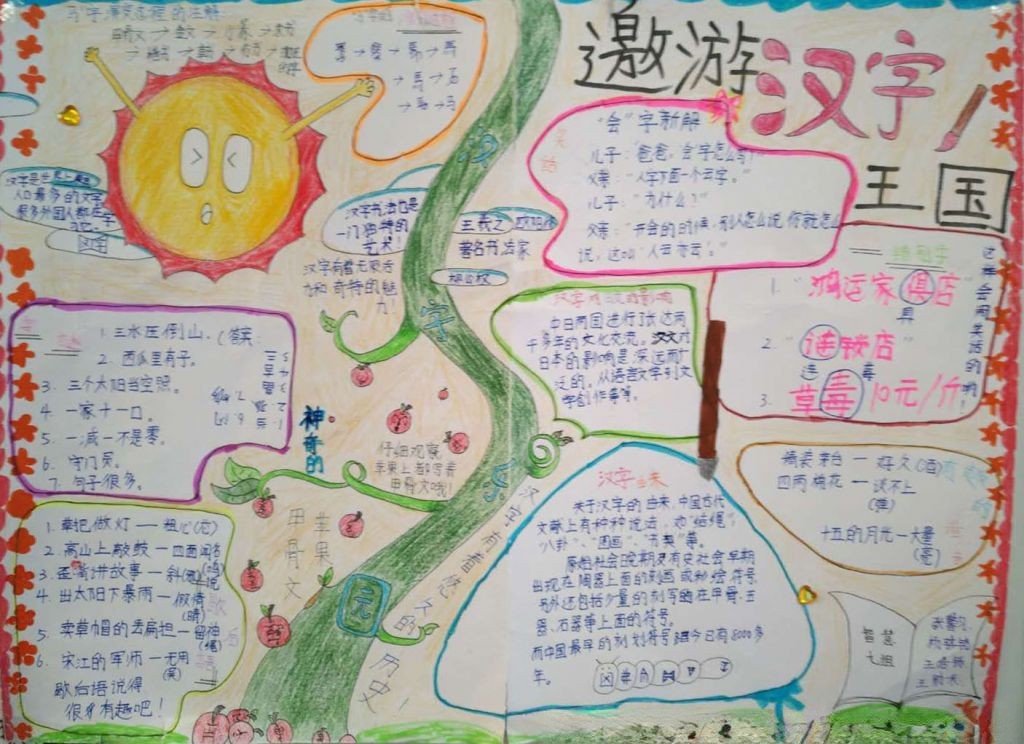 邀游汉字
王国
马字演变过程的注解
甲骨文→金文→小篆→隶书
→楷书→草书→行书→
马
→馬→
汉字是世界上最
人口最多的文字
很多外国人都在学
习它。
汉字书法也是
一门独特的
艺术！
王羲之 欧阳询
著名书法家
柳公权
汉字有着无穷活
力和奇特的魅
力！
笑话
“会”字新解
儿子：“爸爸，会字怎么写？”
父亲：“人字下面一个云字。”
儿子：“为什么？”
父亲：“开会的时候，别人怎么说，你就怎么
说，这叫‘人云亦云’！”
错别字
1. “鸿运家俱店”
具
2. “连锁店”
3. 草莓10元/斤
莓
这样会闹笑话的哟！
1. 三水压倒山。（答案：
2. 西瓜里有子。
3. 三个太阳当空照。
4. 一家十一口。
5. 一减一不是零。
6. 守门员。
7. 句子很多。
汉字对日本的影响
中日两国进行了长达两
千多年的文化交流。汉文对
日本的影响是深远而广
泛的。从语言文字到文
学创作等等。
神奇的
汉字乐园
仔细观察
苹果上都写着
甲骨文哦！
苹果
甲骨文
汉字有着悠久的历史
1. 拿把做灯—粗心（芯）
2. 高山上敲鼓—四面闻名（鸣）
3. 歪嘴讲故事—斜（邪）说
4. 出太阳下暴雨—假情（晴）
5. 卖草帽的丢扁担—留神（绳）
6. 宋江的军师—无用（吴）
歇后语说得
很多有趣吧！
汉字由来
关于汉字的由来，中国古代
文献上有种种说法，如“结绳”、
“八卦”、“图画”、“书契”等。
原始社会晚期及有史社会早期
出现在陶器上面的刻画或彩绘符号，
另外还包括少量的刻写的在甲骨、玉
器、石器等上面的符号。
而中国最早的刻划符号距今已有8000多
年。
精装茅台—好久（酒）
四两棉花—谈不上
（弹）
十五的月光—大量
（亮）
智慧
七组